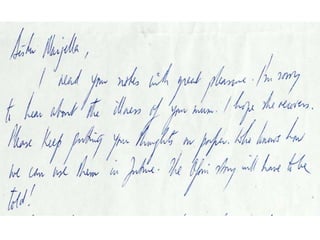 Sister Majella,
I read your notes with great pleasure. I'm sorry
to hear about the illness of your mum. I hope she recovers.
Please keep putting your thoughts on paper. Who knows how
we can use them in future. The story will have to be
told!